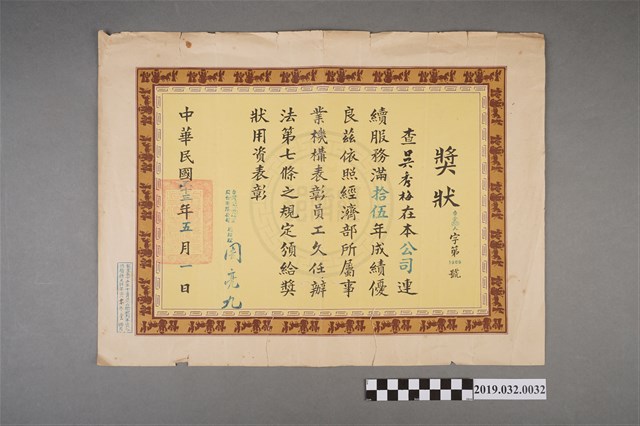 獎狀
字第1600號
查吳秀梅在本公司連
續服務滿拾伍年成績優
良茲依照經濟部所屬事
業機構表彰員工久任辦
法第七條之規定頒給獎
狀用資表彰
周亮九
中華民國 年五月一日
2019.032.0032